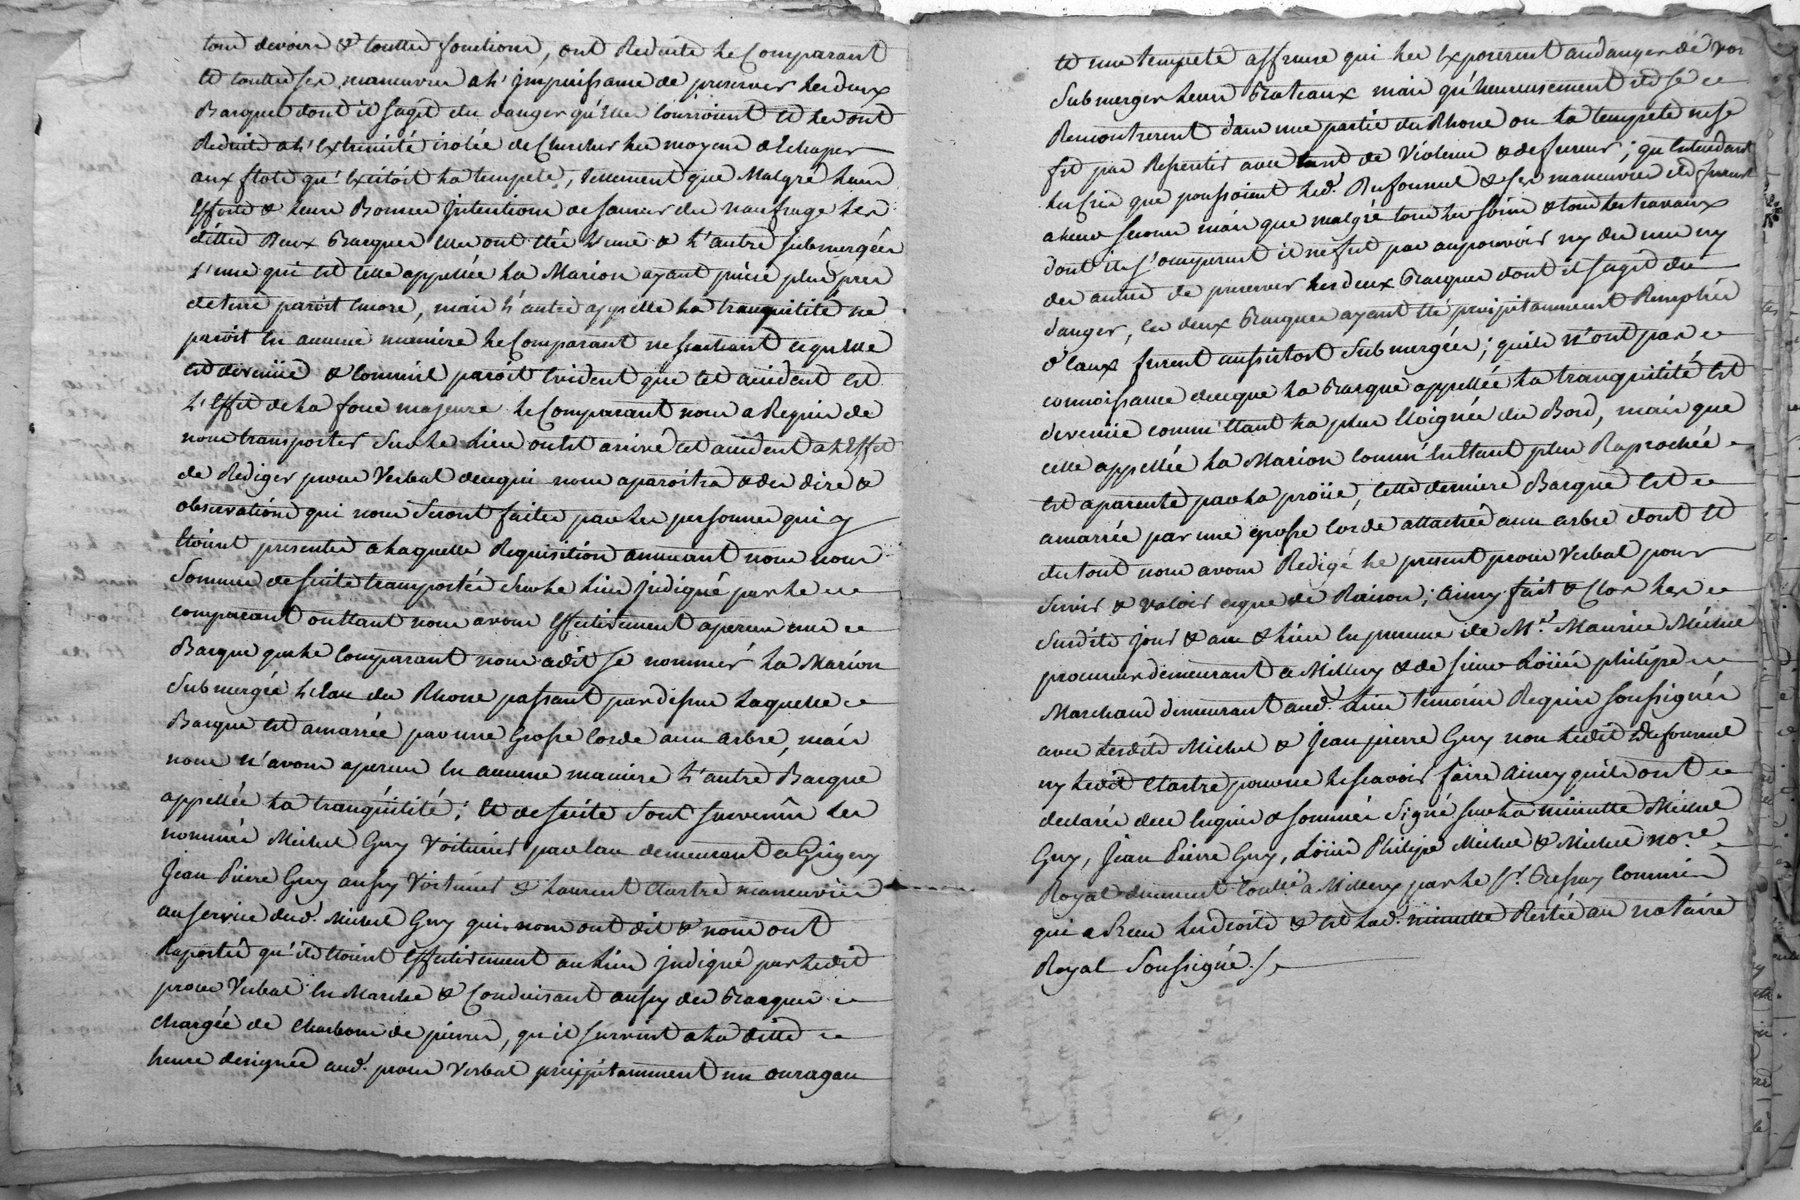 tous devoirs & touttes fonctions, ont Reduits le Comparant
et touttes ses maneuvres a l'jmpuissance de preserver les deux
Barques dont il sagit du danger qu'elles couroient et les ont
Reduits a l'extremité isolée de Chercher les moyens d'Echaper
aux flots qu'Excitoit la tempete, tellement que Malgré leurs
Efforts & leurs Bonnes Intentions de sauver du naufrage les
dittes Deux Barques elles ont été l'une & l'autre submergées
l'une qui est celle appellée la Marion ayant peri plus pres
de terre paroit encore, mais l'autre appellée la tranquilité ne
paroit en aucune maniere le Comparant ne sachant ce qu'elle
est devenüe & comme il paroit Evident que cet accident est
l'Effet de la force majeure le Comparant nous a Requis de
nous transporter sur le Lieu ou est arrivé cet accident a l'Effet
de Rediger procés Verbal de ce qui nous aparoitra & des dires &
observations qui nous seront faites par les personnes qui y
étoient presentes a laquelle Requisition annuant nous nous
sommes de suite transportés sur le Lieu jndiqué par le
comparant ou étant nous avons Effectivement aperçu une
Barque que le Comparant nous a dit se nommer la Marion
submergée l'eau du Rhone passant par dessus laquelle
Barque est amarrée par une Grosse Corde a un arbre, mais
nous n'avons aperçu en aucune maniere l'autre Barque
appellée la tranquilité; et de suite sont survenus les
nommés Michel Guy Voiturier par Eau demeurant a Grigny
Jean Pierre Guy aussy Voiturier & Laurent Clastre maneuvrier
au service dud. Michel Guy qui nous ont dit & nous ont
Raporté qu'ils étoient effectivement au Lieu jndiqué par ledit
procés Verbal en Marche & Conduisant aussy des Barques
chargées de Charbons de pierres, qu'il survint a la ditte
heure designée aud. procés Verbal precipitamment un ouragan
et une tempete affreuse qui les Exposerent au danger de voir
submerger leurs Bateaux mais qu'heureusement ils se
Rencontrerent dans une partie du Rhone ou la tempete ne se
fit pas Ressentir avec tant de Violence & de fureur; qu'Entendant
les Cris que poussoient led. Dufournel & ses maneuvres ils furent
a leur secours mais que malgré tous les soins & tous les travaux
dont ils s'occuperent il ne fut pas au pouvoir ny des uns ny
des autres de preserver les deux Barques dont il sagit du
danger, les deux Barques ayant été precipitamment Remplies
d'Eaux furent aussitost submergées; qu'ils n'ont pas
connoissance de ce que la Barque appellée la tranquilité est
devenüe comme étant la plus Eloignée du Bord, mais que
celle appellée la Marion comme Etant plus Raprochée
est aparente par la proüe, cette derniere Barque est
amarrée par une grosse Corde attachée a un arbre dont et
du tout nous avons Redigé le present procés Verbal pour
servir & valoir ce que de Raison; ainsy fait & Clos les
susdits jour & an & lieu en presence de Me. Maurice Michel
procureur demeurant a Millery & de sieur Loüis philipe
Marchand demeurant aud. Lieu temoins Requis soussignés
avec lesdits Michel & Jean pierre Guy non ledit Dufournel
ny ledit Clastre pour ne le scavoir faire ainsy qu'ils ont
declarés de ce Enquis & sommés signé sur la minutte Michel
Guy, Jean Pierre Guy, Loüis Philipe Michel & Michel nore.
Royal duement Controllé a Millery par le Sr. Gresnay Commis
qui a Recu les droits & est lad. minutte Restée au notaire
Royal soussigné